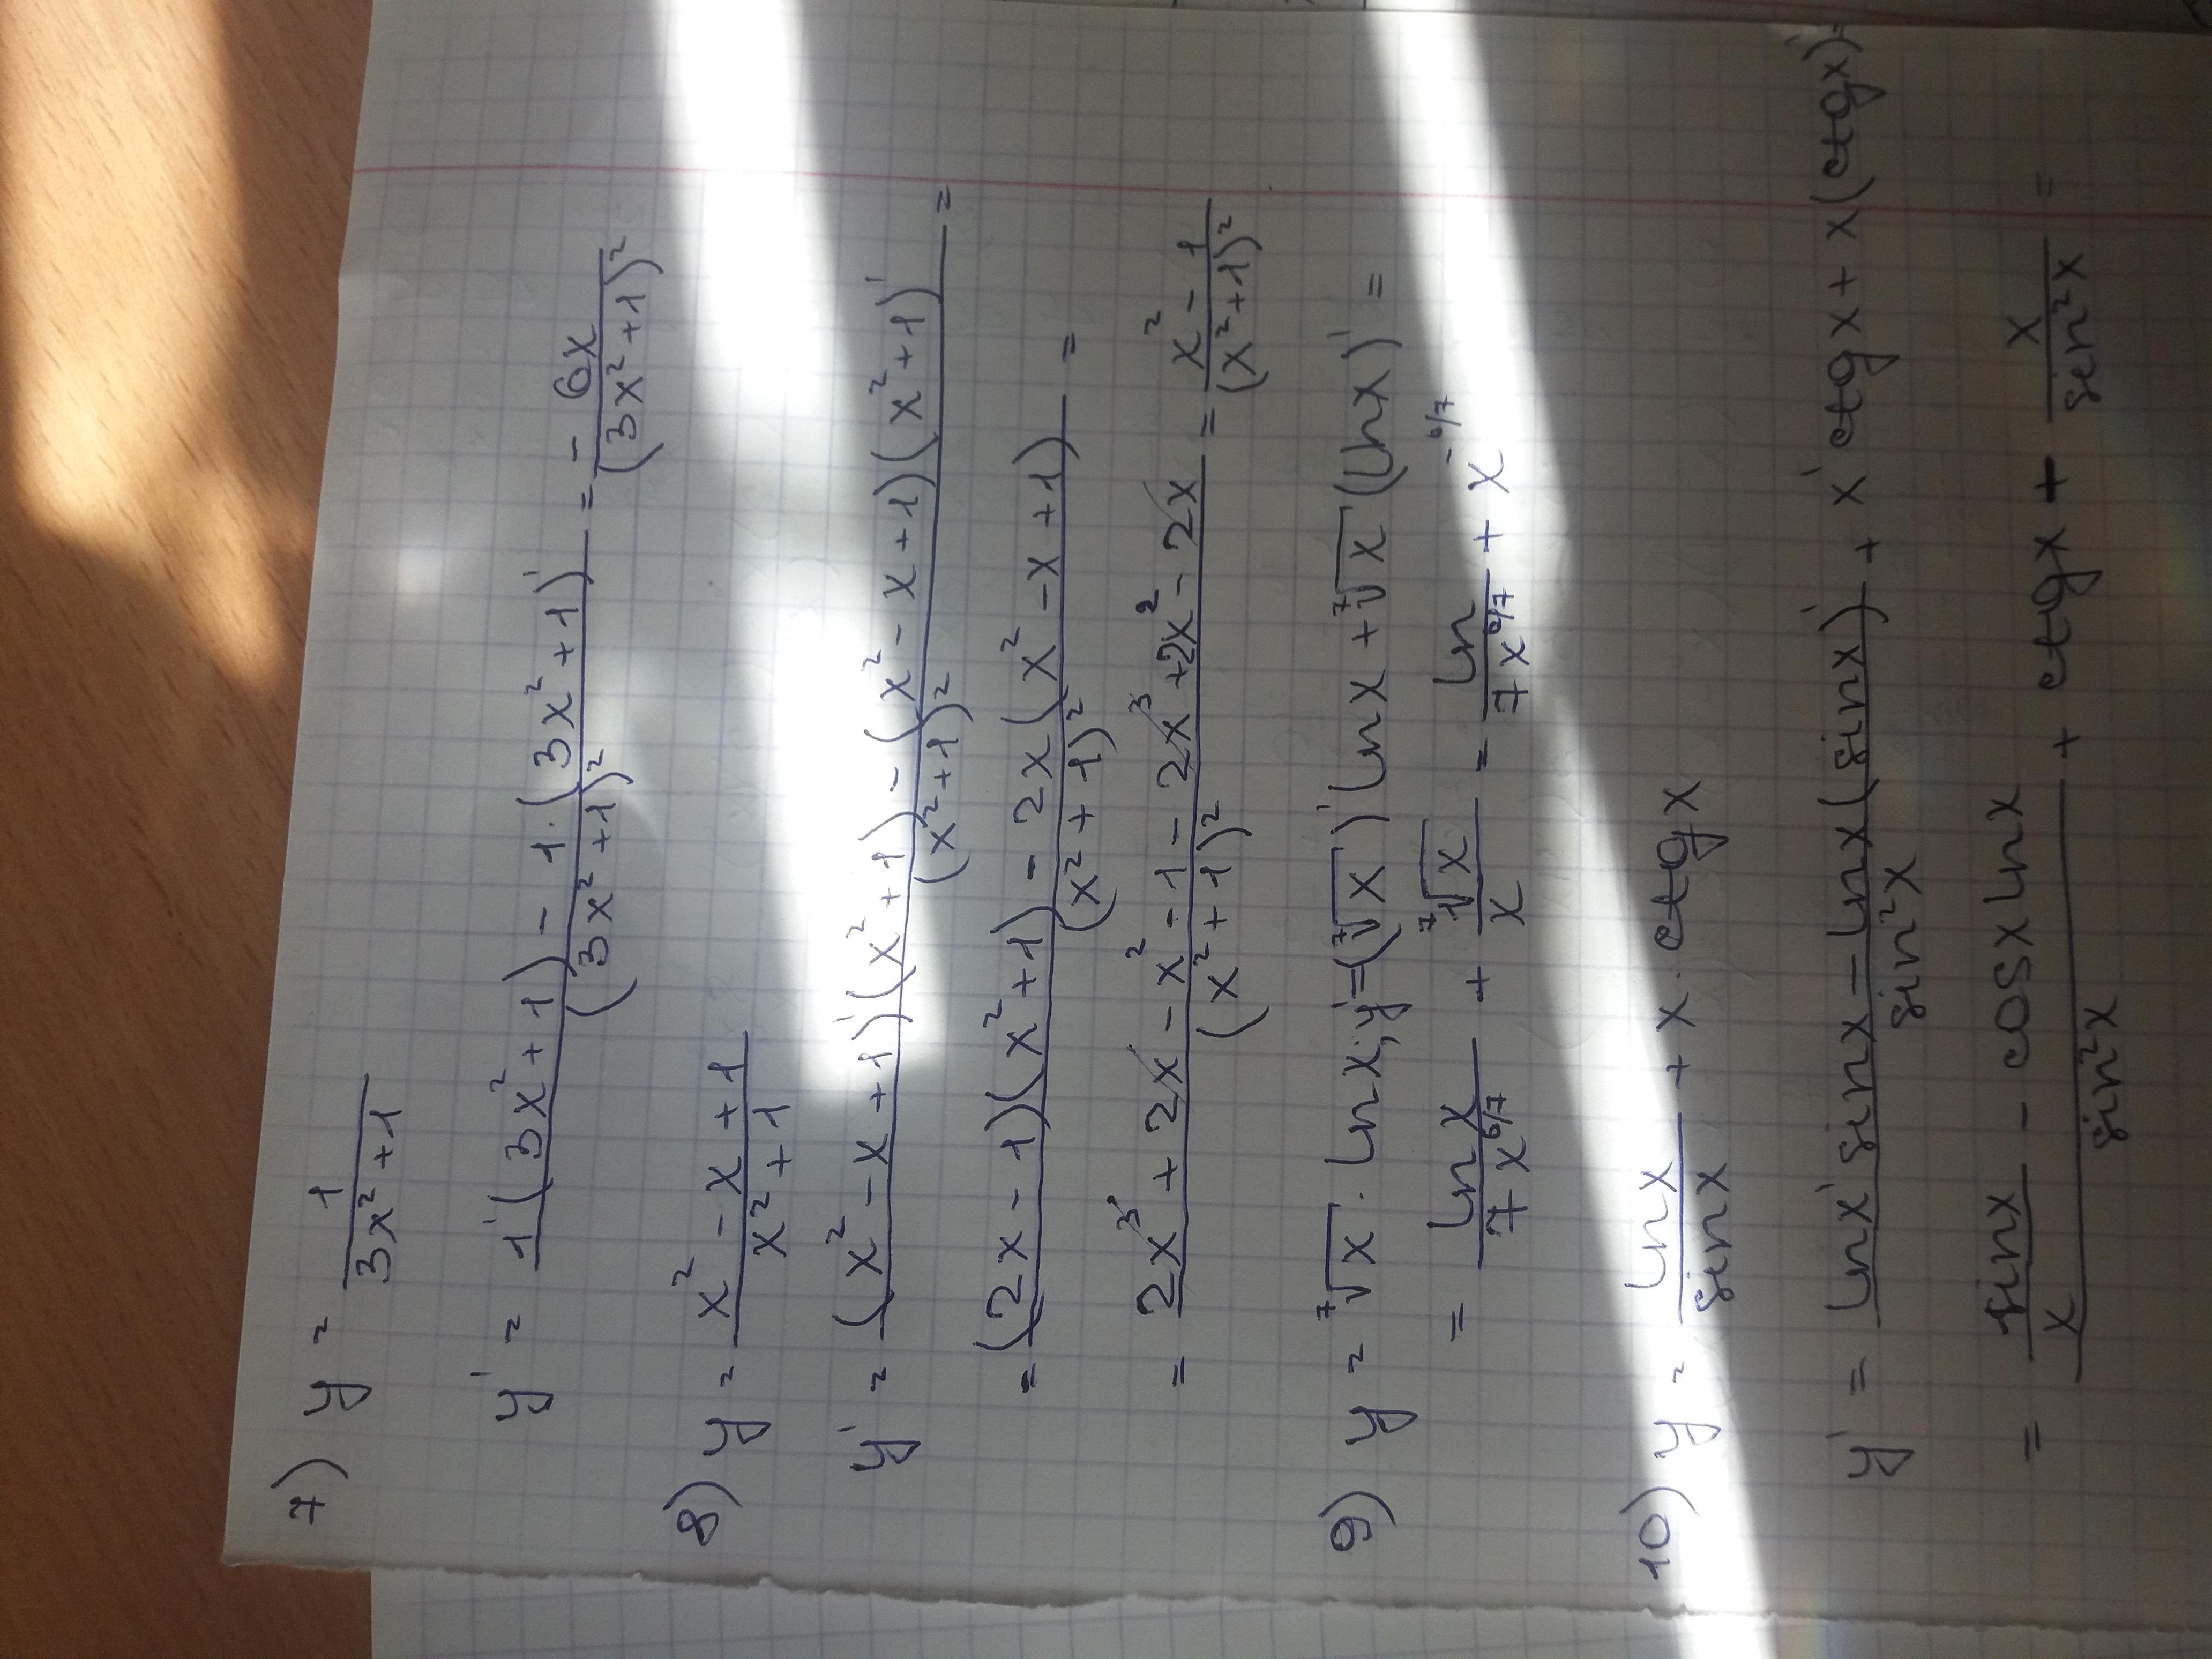 7) y = 1/(3x² + 1)
y' = (1'(3x² + 1) - 1·(3x² + 1)')/(3x² + 1)² = - 6x/(3x² + 1)²
8) y = (x² - x + 1)/(x² + 1)
y' = ((x² - x + 1)'(x² + 1) - (x² - x + 1)(x² + 1)')/(x² + 1)² =
= ((2x - 1)(x² + 1) - 2x(x² - x + 1))/(x² + 1)² =
= (2x³ + 2x - x² - 1 - 2x³ + 2x² - 2x)/(x² + 1)² = (x² - 1)/(x² + 1)²
9) y = ⁷√x · lnx; y' = (⁷√x)' lnx + ⁷√x (lnx)' =
= lnx/(7x^(6/7)) + ⁷√x/x = ln/(7x^(6/7)) + x^(-6/7)
10) y = lnx/sinx + x · ctgx
y' = (lnx' sinx - lnx(sinx)')/sin²x + x' ctgx + x(ctgx)' =
= (sinx/x - cosx lnx)/sin²x + ctgx + x/sin²x =